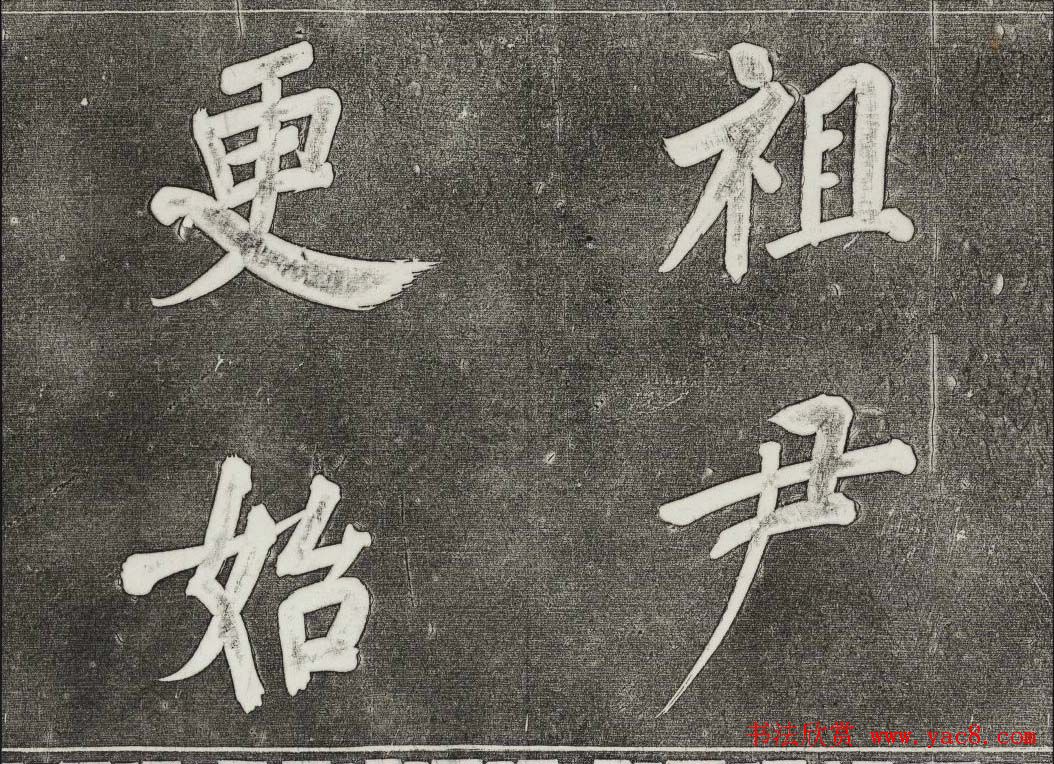 祖尹
更始
书法欣赏 www.yac8.com